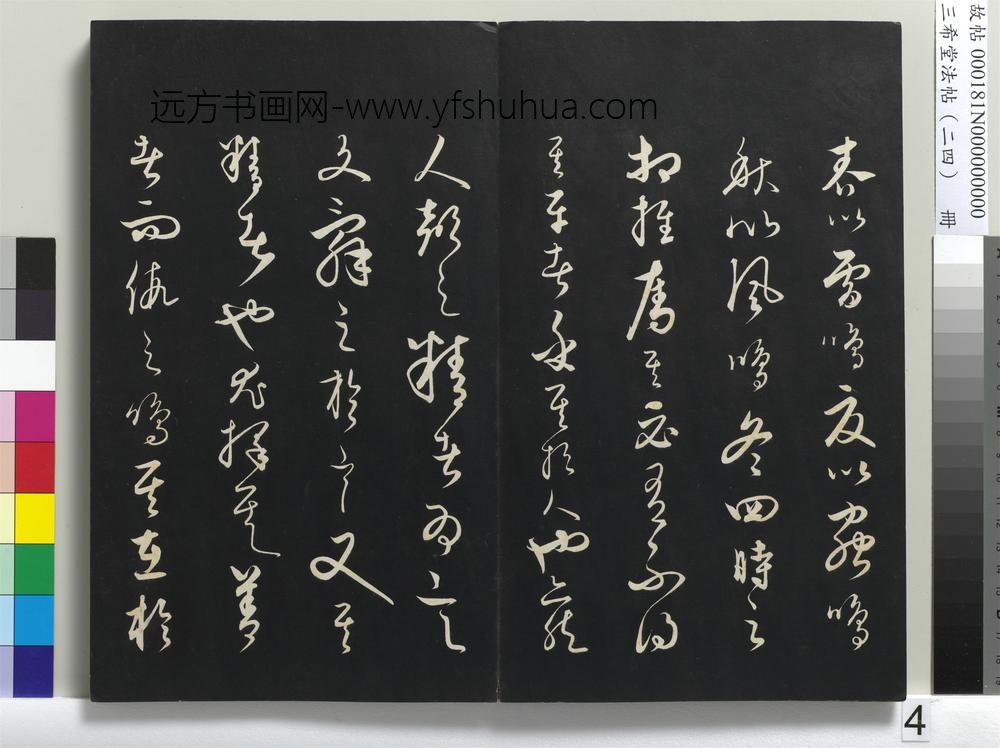 春以雷鳴夏以蟲鳴
秋以風鳴冬四時之
相推奪其必有不得
其平者乎其於人也亦然
人聲之精者為言
文辭之於言又其
精者也尤擇其善
者而假之鳴其在於
远方书画网-www.yfshuhua.com
故帖 000181N000000000
三希堂法帖(二四) 冊
4